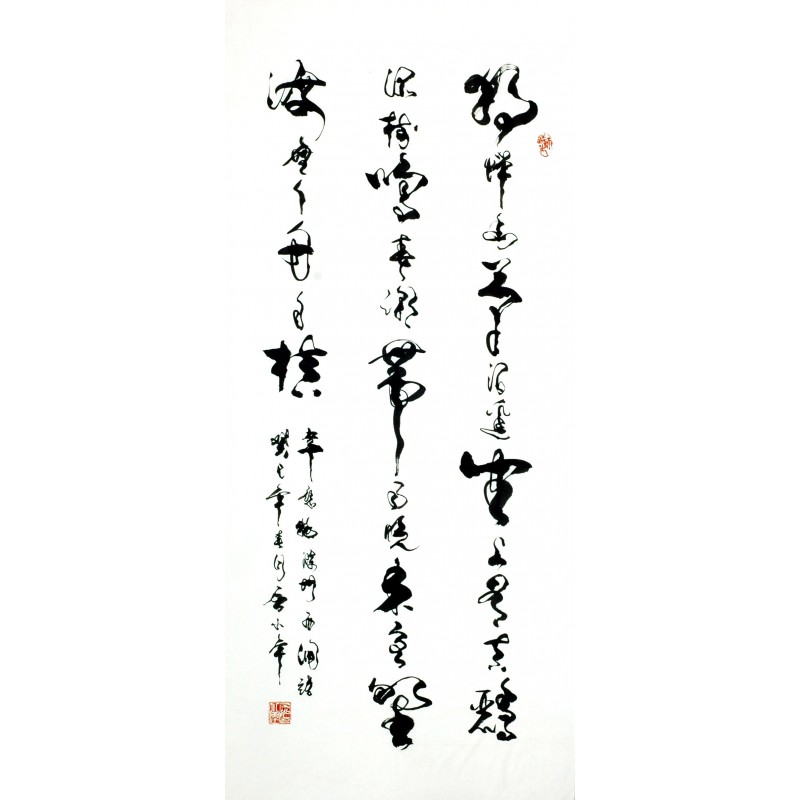 獨憐幽草澗邊生上有黃鸝
深樹鳴春潮帶雨晚來急野
渡無人舟自橫
韋應物滁州西澗詩
癸巳年春月